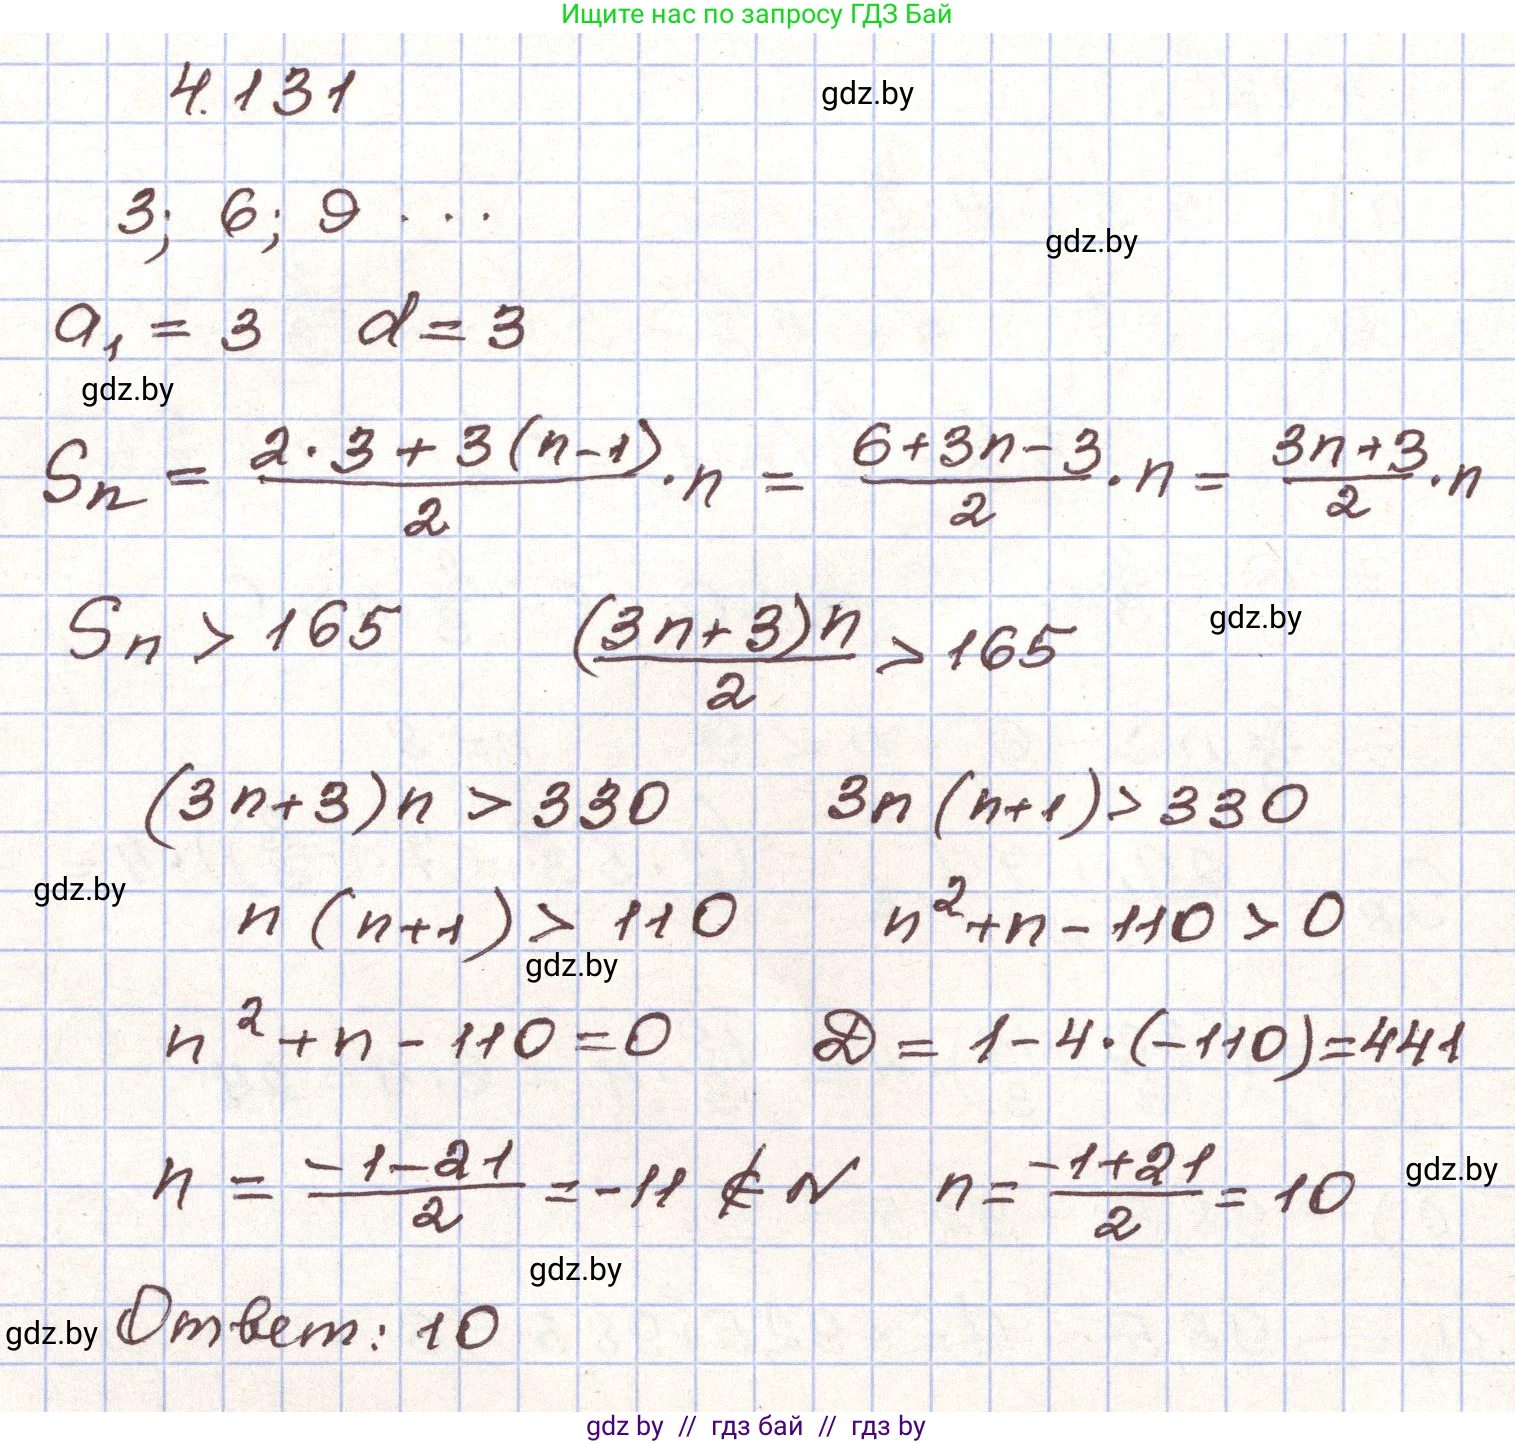 Ищите нас по запросу ГДЗ Бай
4.131
gdz.by
3; 6; 9 ...
gdz.by
a₁ = 3 d = 3
gdz.by
Sₙ = (2·3+3(n-1))/2 · n = (6+3n-3)/2 · n = (3n+3)/2 · n
Sₙ > 165 ((3n+3)n)/2 > 165
gdz.by
(3n+3)n > 330 3n(n+1) > 330
gdz.by
n(n+1) > 110 n²+n-110 > 0
gdz.by
n²+n-110=0 D = 1-4·(-110)=441
n = (-1-21)/2 = -11 ∉ N n = (-1+21)/2 = 10
gdz.by
gdz.by
gdz.by
Ответ: 10
gdz by // гдз бай // гдз by